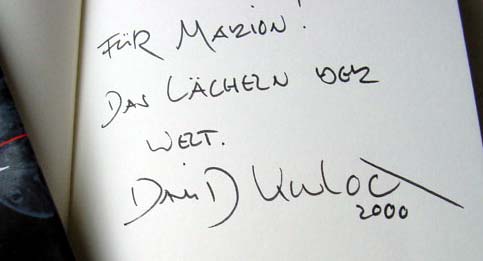 FÜR MARION!
DAS LÄCHELN DER
WELT.
DAVID
2000